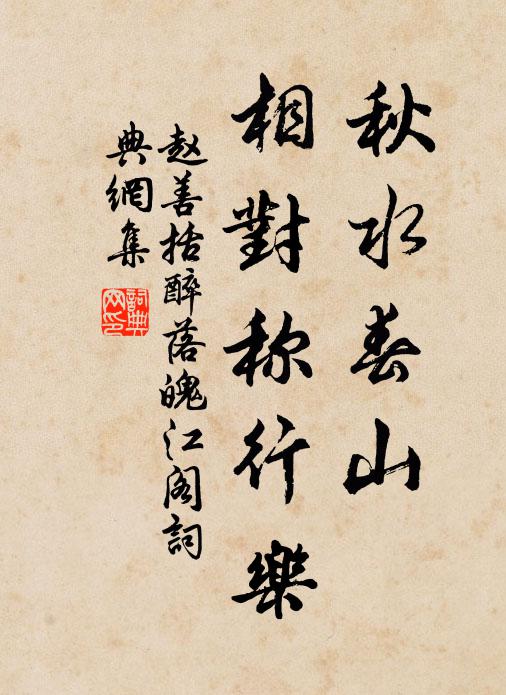 秋水春山
相對称行樂
赵善括醉落魄江阁詞
典網集
詞典网印